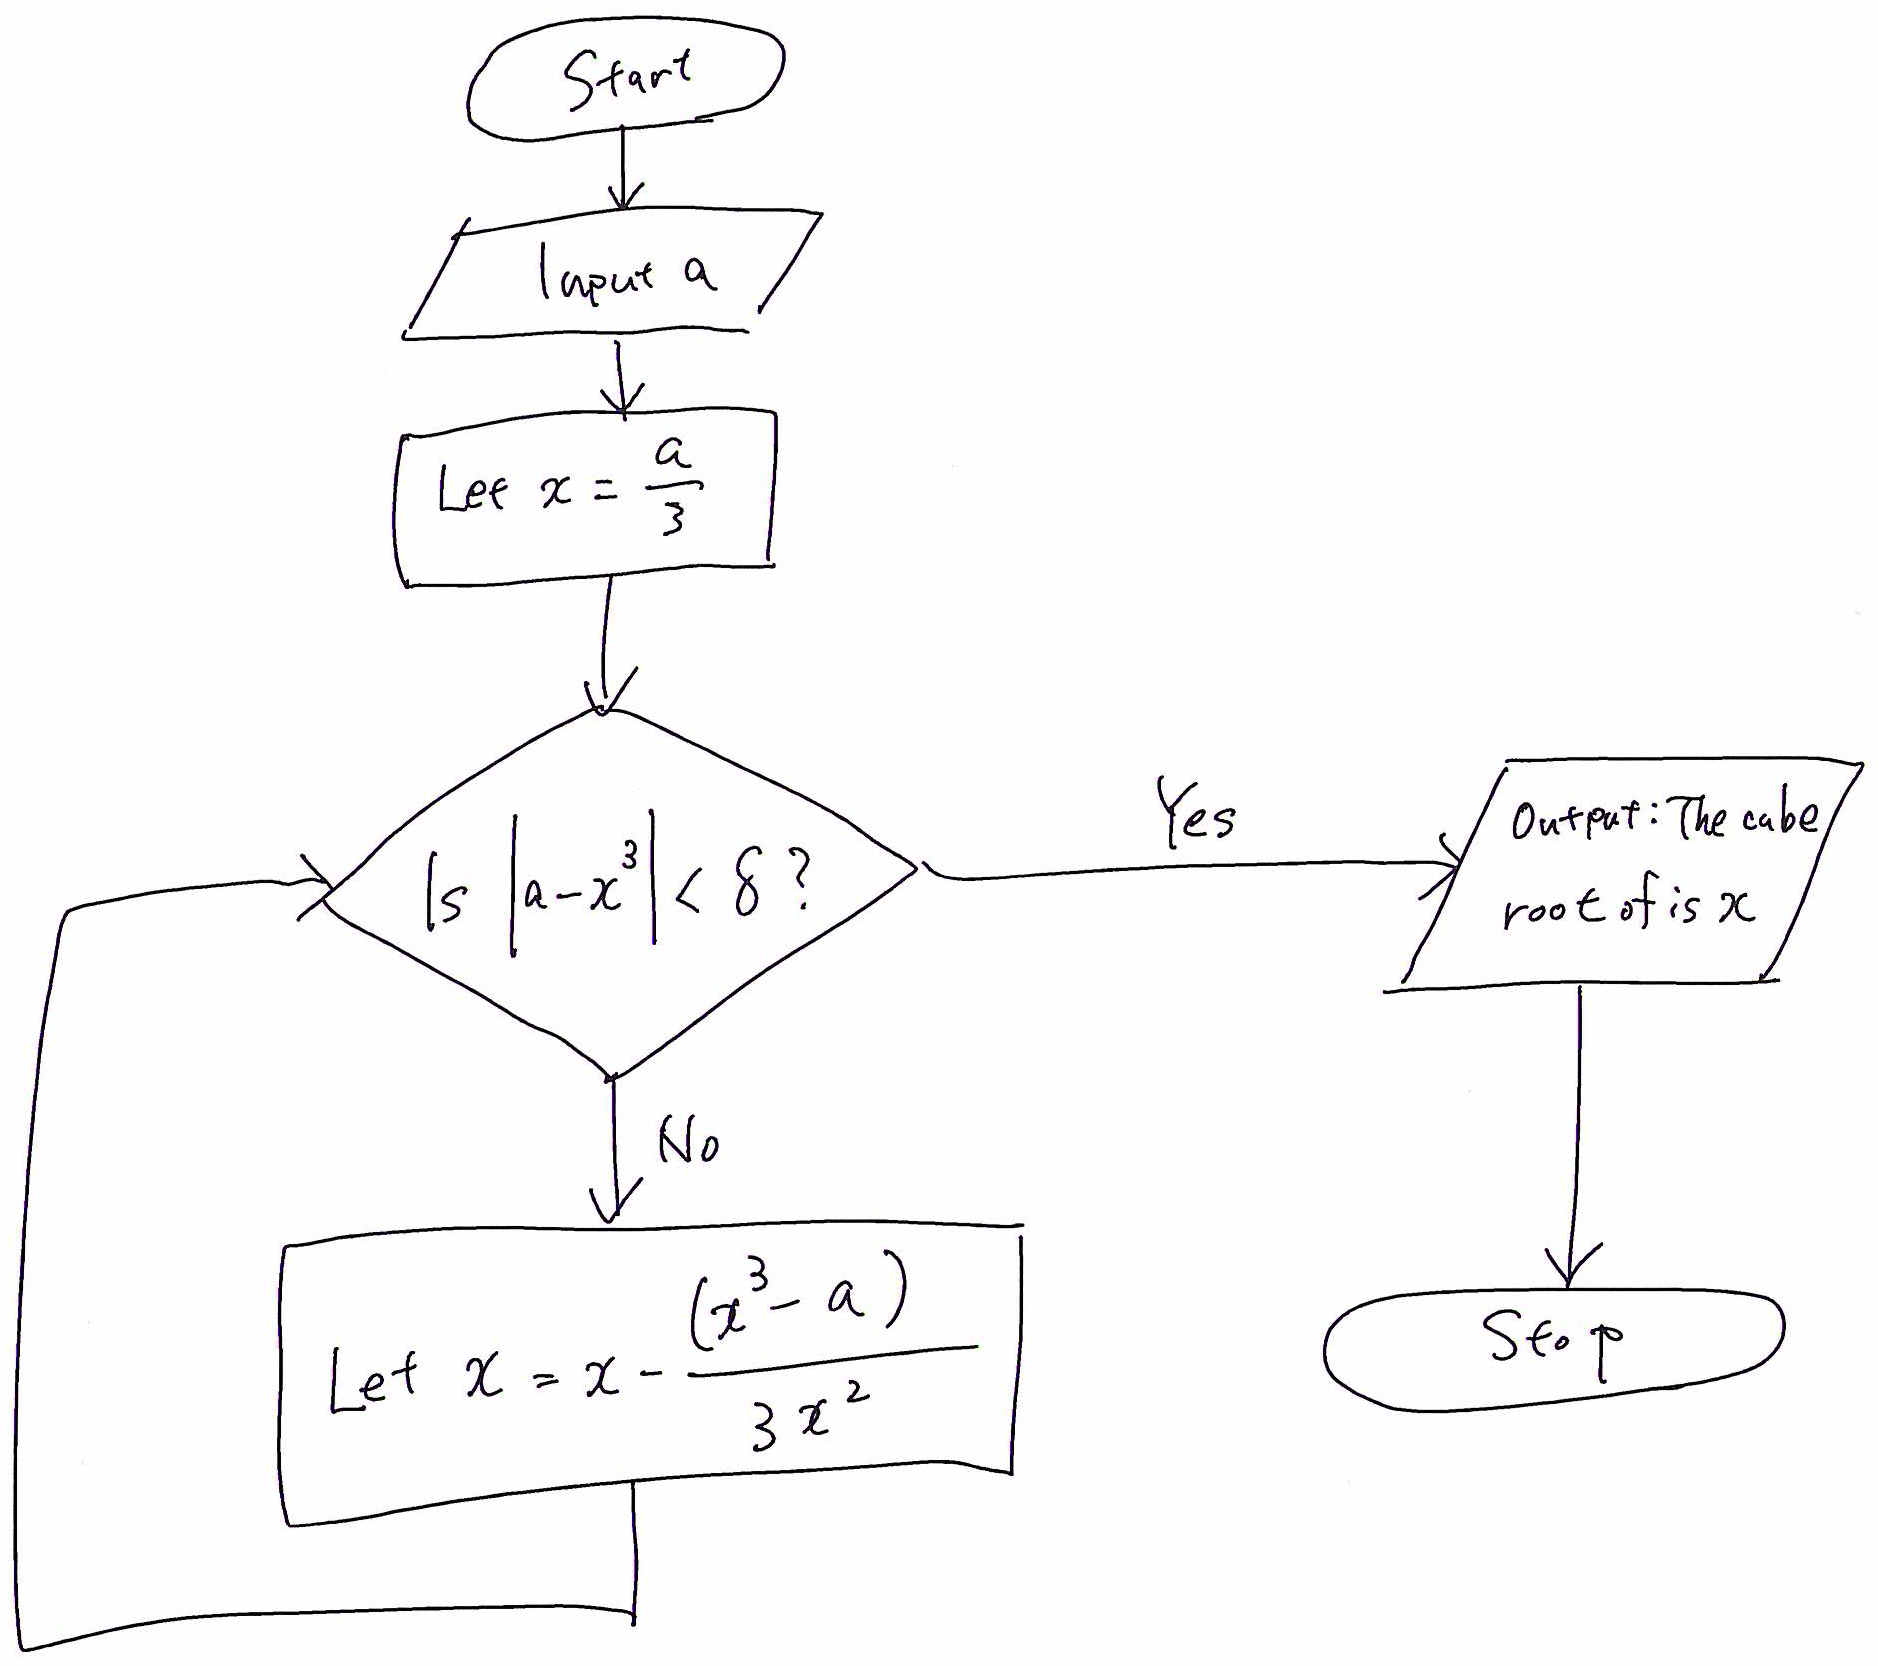 Start
Input a
Let x = a/3
Is |a-x³| < δ ?
Yes
Output: The cube
root of is x
No
Let x = x - (x³- a)/3x²
Stop